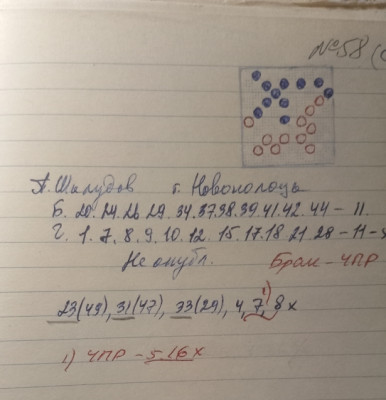 №58 (
А. Шалудов г. Новополоцк
Б. 20. 24. 26 29. 34. 37. 38. 39. 41. 42. 44 – 11.
Ч. 1. 7. 8. 9. 10. 12. 15. 17. 18 21 28 – 11 –
Не опубл. Брак – ЧПР
23(49), 31(47), 33(29), 4, 7, 8 x
1)
1) ЧПР – 5. 16 x